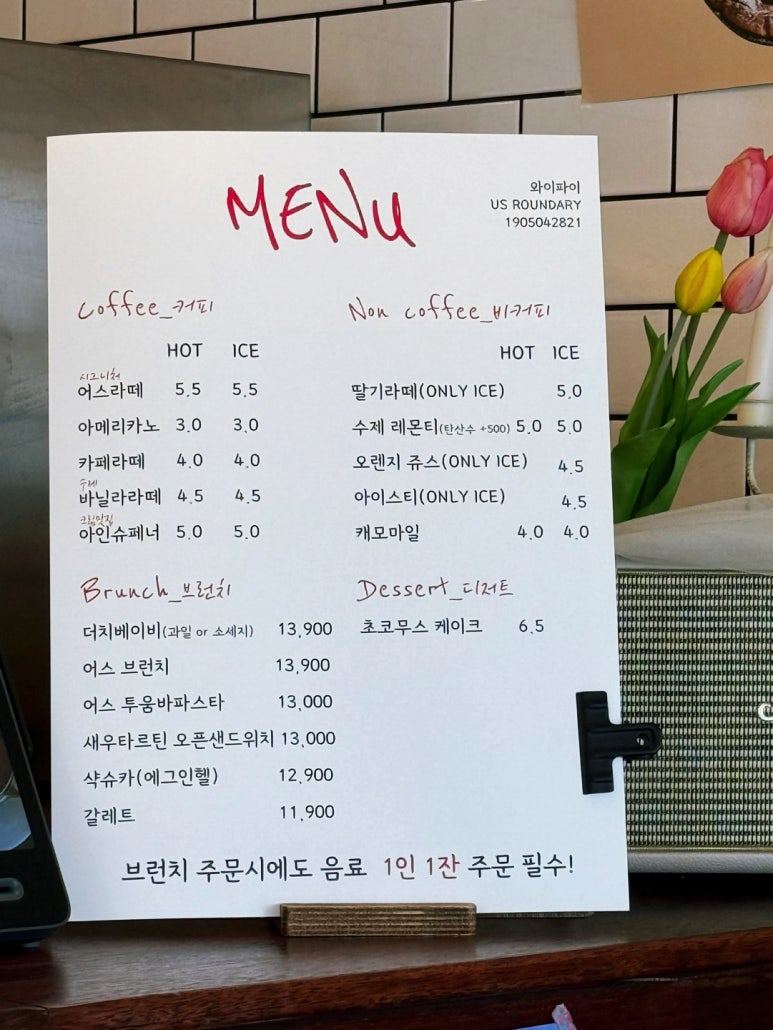 MENU
와이파이
US ROUNDARY
1905042821
Coffee_커피
HOT ICE
시그니처
어스라떼 5.5 5.5
아메리카노 3.0 3.0
카페라떼 4.0 4.0
수제
바닐라라떼 4.5 4.5
크림맛집
아인슈페너 5.0 5.0
Non coffee_비커피
HOT ICE
딸기라떼(ONLY ICE) 5.0
수제 레몬티(탄산수 +500) 5.0 5.0
오렌지 쥬스(ONLY ICE) 4.5
아이스티(ONLY ICE) 4.5
캐모마일 4.0 4.0
Brunch_브런치
더치베이비(과일 or 소세지) 13,900
어스 브런치 13,900
어스 투움바파스타 13,000
새우타르틴 오픈샌드위치 13,000
샥슈카(에그인헬) 12,900
갈레트 11,900
Dessert_디저트
초코무스 케이크 6.5
브런치 주문시에도 음료 1인 1잔 주문 필수!